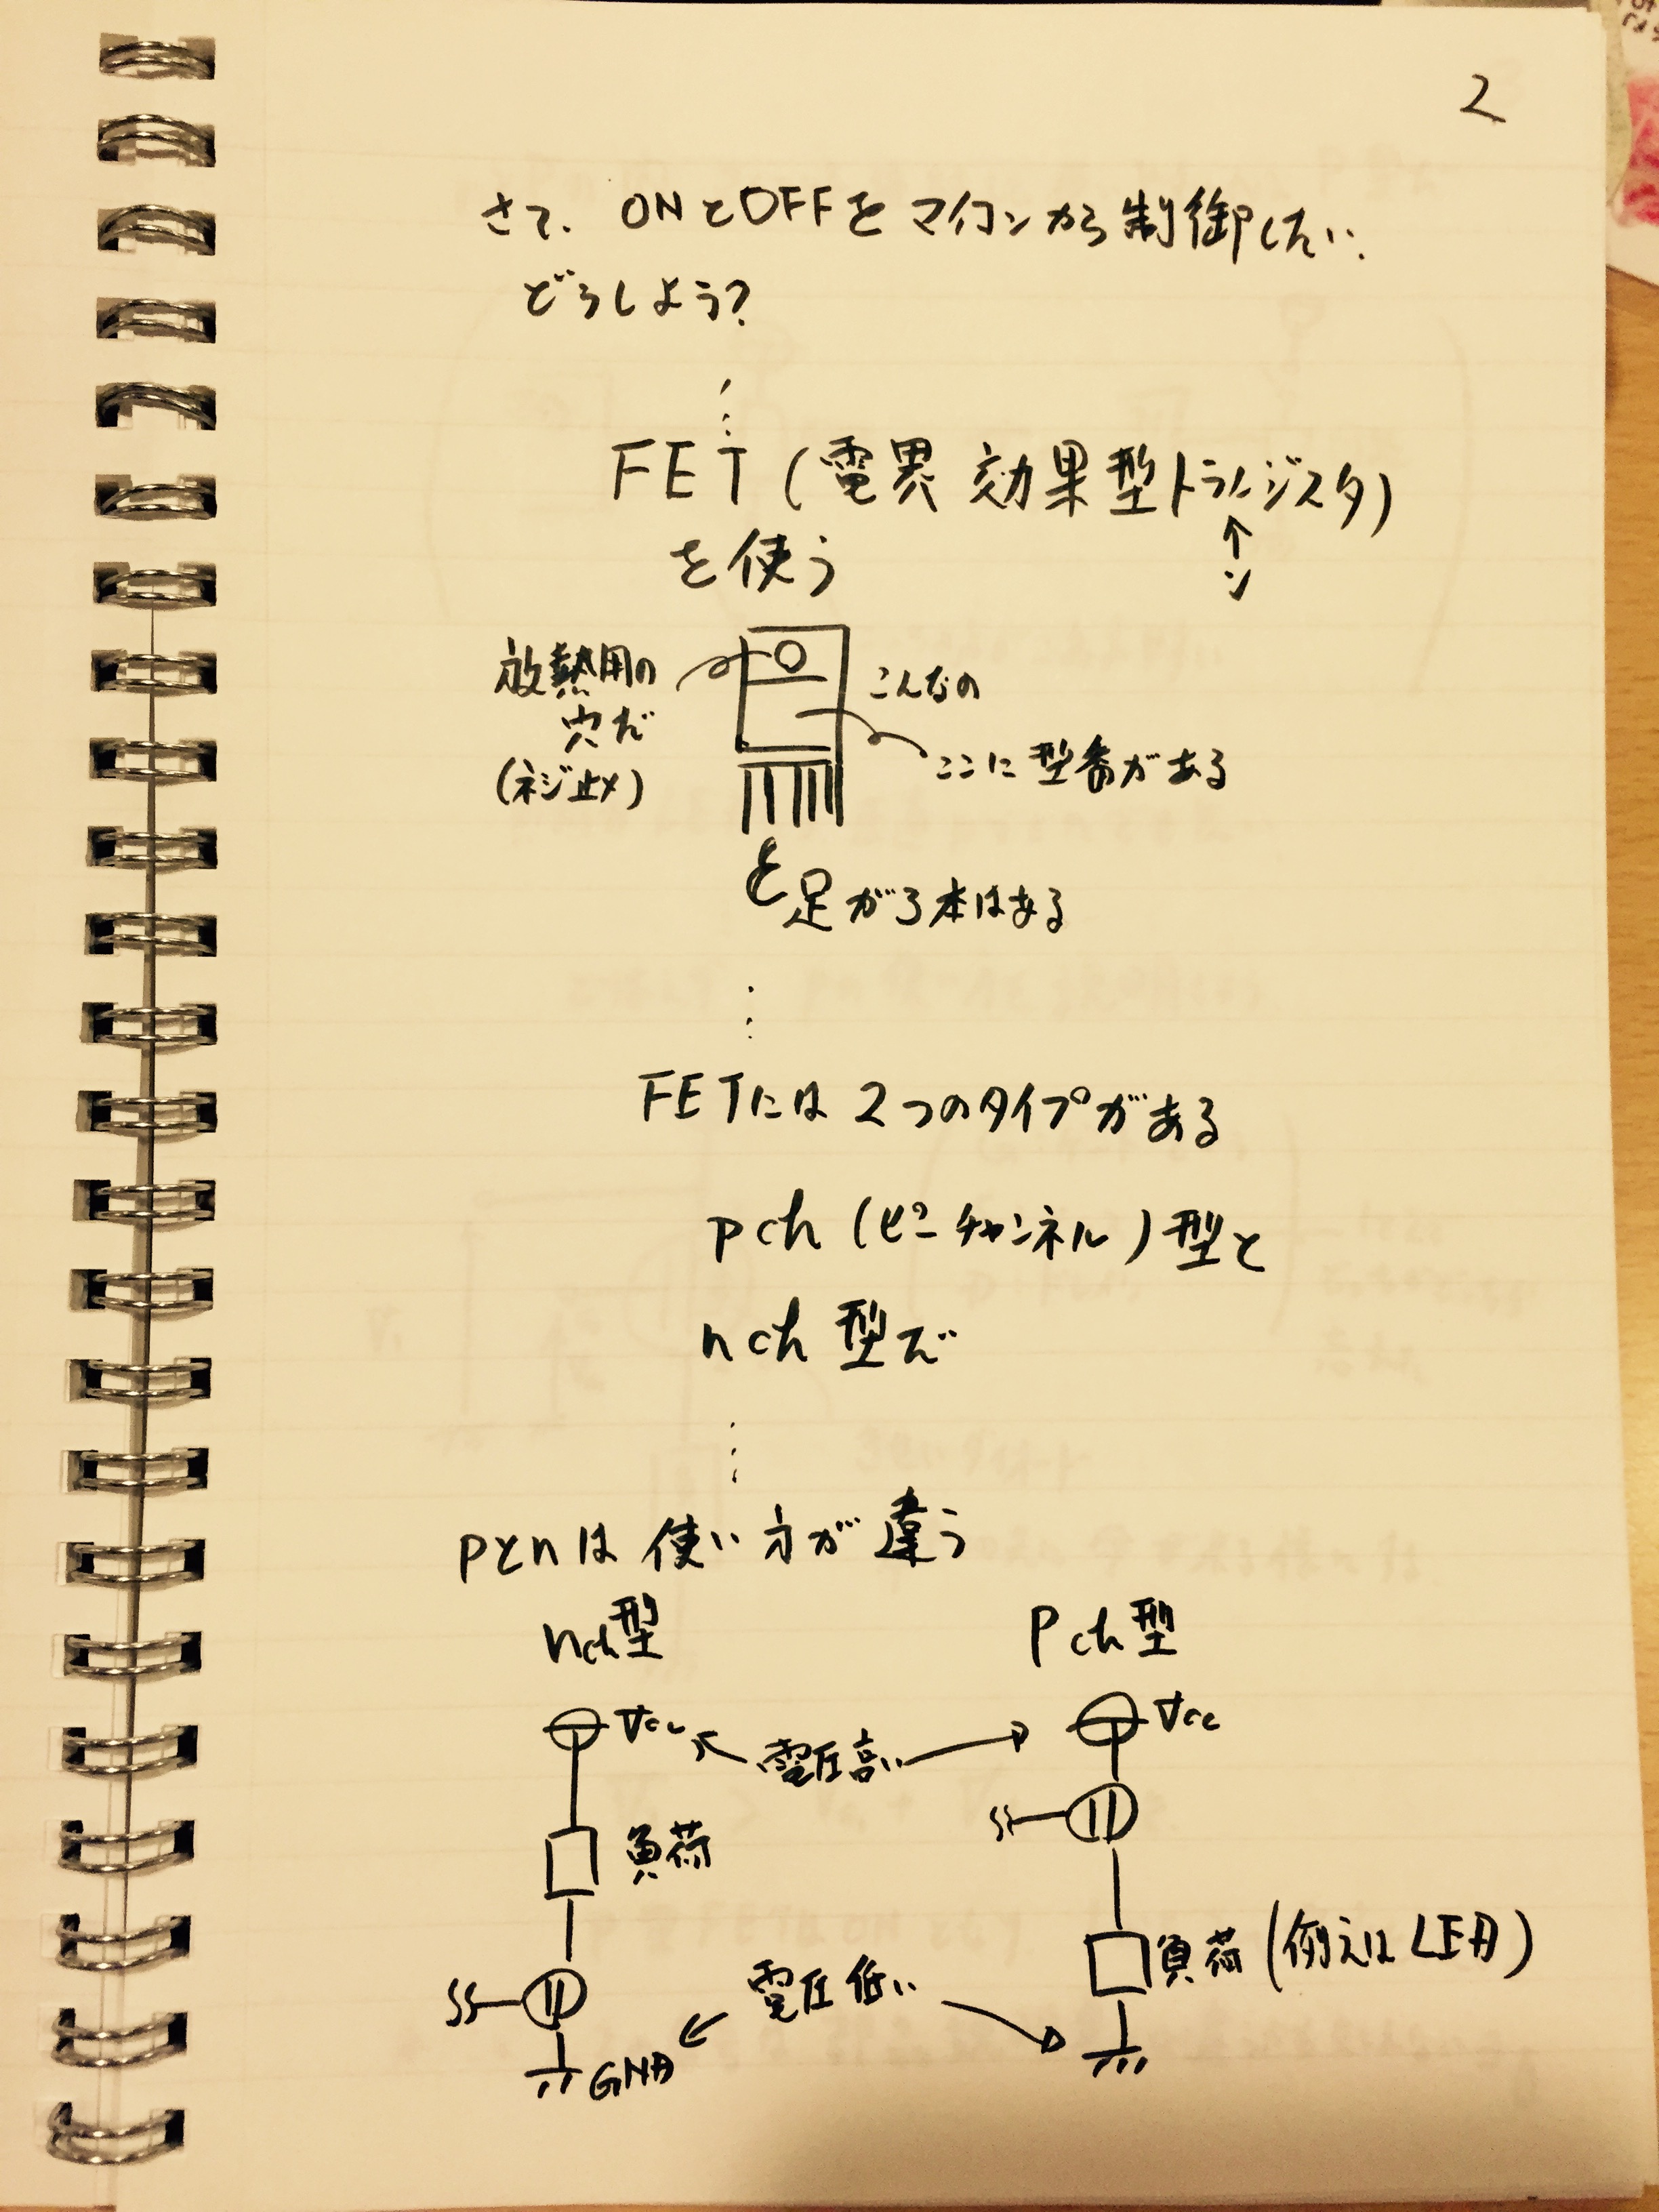 2
さて、ONとOFFをマイコンから制御したい.
どうしよう?
FET (電界効果型トランジスタ)
↑
ン
を使う
放熱用の
穴だ
(ネジ止メ)
こんなの
ここに型番がある
足が3本はある
FETには2つのタイプがある
pch (ピーチャンネル) 型と
nch 型で
pとnは使い方が違う
nch型
Pch型
Vcc
電圧高い
Vcc
負荷
電圧低い
負荷 (例えば LED)
GND